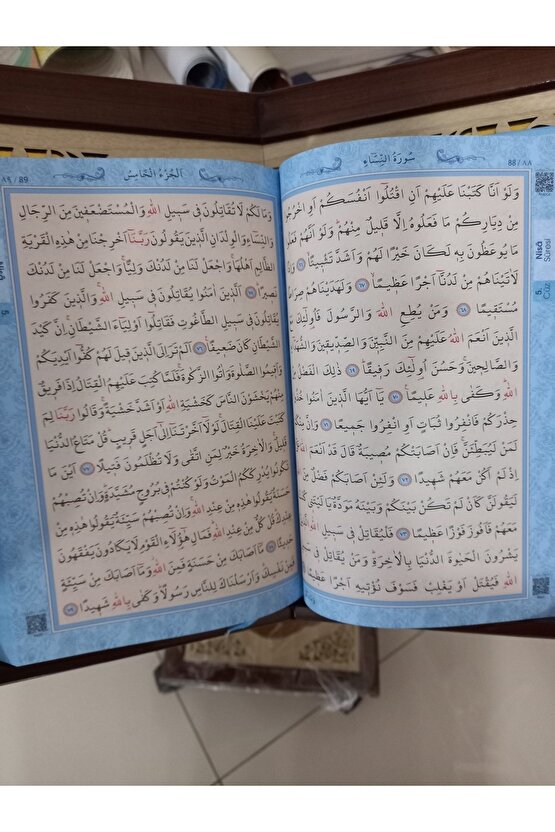 88 / ٨٨
سُورَةُ النِّسَاءِ
Nisâ
Sûresi
5.
Cüz
وَلَوْ اَنَّا كَتَبْنَا عَلَيْهِمْ اَنِ اقْتُلُوٓا اَنْفُسَكُمْ اَوِ اخْرُجُوا
مِنْ دِيَارِكُمْ مَا فَعَلُوهُ اِلَّا قَلِيلٌ مِنْهُمْۜ وَلَوْ اَنَّهُمْ فَعَلُوا
مَا يُوعَظُونَ بِهِ لَكَانَ خَيْرًا لَهُمْ وَاَشَدَّ تَثْبِيتًاۙ ﴿٦٦﴾ وَاِذًا
لَاٰتَيْنَاهُمْ مِنْ لَدُنَّٓا اَجْرًا عَظِيمًاۙ ﴿٦٧﴾ وَلَهَدَيْنَاهُمْ صِرَاطًا
مُسْتَقِيمًا ﴿٦٨﴾ وَمَنْ يُطِعِ اللّٰهَ وَالرَّسُولَ فَاُو۬لٰٓئِكَ مَعَ
الَّذِينَ اَنْعَمَ اللّٰهُ عَلَيْهِمْ مِنَ النَّبِيّٖنَ وَالصِّدِّيقِينَ وَالشُّهَدَٓاءِ
وَالصَّالِحِينَۚ وَحَسُنَ اُو۬لٰٓئِكَ رَفِيقًا ﴿٦٩﴾ ذٰلِكَ الْفَضْلُ مِنَ
اللّٰهِۜ وَكَفٰى بِاللّٰهِ عَلِيمًا ﴿٧٠﴾ يَٓا اَيُّهَا الَّذِينَ اٰمَنُوا خُذُوا
حِذْرَكُمْ فَانْفِرُوا ثُبَاتٍ اَوِ انْفِرُوا جَمِيعًا ﴿٧١﴾ وَاِنَّ مِنْكُمْ
لَمَنْ لَيُبَطِّئَنَّۚ فَاِنْ اَصَابَتْكُمْ مُصِيبَةٌ قَالَ قَدْ اَنْعَمَ اللّٰهُ عَلَيَّ
اِذْ لَمْ اَكُنْ مَعَهُمْ شَهِيدًا ﴿٧٢﴾ وَلَئِنْ اَصَابَكُمْ فَضْلٌ مِنَ اللّٰهِ
لَيَقُولَنَّ كَاَنْ لَمْ تَكُنْ بَيْنَكُمْ وَبَيْنَهُ مَوَدَّةٌ يَا لَيْتَنِي كُنْتُ
مَعَهُمْ فَاَفُوزَ فَوْزًا عَظِيمًا ﴿٧٣﴾ فَلْيُقَاتِلْ فِي سَبِيلِ اللّٰهِ الَّذِينَ
يَشْرُونَ الْحَيٰوةَ الدُّنْيَا بِالْاٰخِرَةِۜ وَمَنْ يُقَاتِلْ فِي سَبِيلِ
اللّٰهِ فَيُقْتَلْ اَوْ يَغْلِبْ فَسَوْفَ نُؤْتِيهِ اَجْرًا عَظِيمًا ﴿٧٤﴾
اَلْجُزْءُ الْخَامِسُ
٨٩ / 89
وَمَا لَكُمْ لَا تُقَاتِلُونَ فِي سَبِيلِ اللّٰهِ وَالْمُسْتَضْعَفِينَ مِنَ الرِّجَالِ
وَالنِّسَٓاءِ وَالْوِلْدَانِ الَّذِينَ يَقُولُونَ رَبَّنَٓا اَخْرِجْنَا مِنْ هٰذِهِ الْقَرْيَةِ
الظَّالِمِ اَهْلُهَاۚ وَاجْعَلْ لَنَا مِنْ لَدُنْكَ وَلِيًّاۚ وَاجْعَلْ لَنَا مِنْ لَدُنْكَ
نَصِيرًاۜ ﴿٧٥﴾ اَلَّذِينَ اٰمَنُوا يُقَاتِلُونَ فِي سَبِيلِ اللّٰهِۚ وَالَّذِينَ كَفَرُوا
يُقَاتِلُونَ فِي سَبِيلِ الطَّاغُوتِ فَقَاتِلُٓوا اَوْلِيَٓاءَ الشَّيْطَانِۚ اِنَّ كَيْدَ
الشَّيْطَانِ كَانَ ضَعِيفًا۟ ﴿٧٦﴾ اَلَمْ تَرَ اِلَى الَّذِينَ قِيلَ لَهُمْ كُفُّٓوا اَيْدِيَكُمْ
وَاَقِيمُوا الصَّلٰوةَ وَاٰتُوا الزَّكٰوةَۚ فَلَمَّا كُتِبَ عَلَيْهِمُ الْقِتَالُ اِذَا فَرِيقٌ
مِنْهُمْ يَخْشَوْنَ النَّاسَ كَخَشْيَةِ اللّٰهِ اَوْ اَشَدَّ خَشْيَةًۚ وَقَالُوا رَبَّنَا لِمَ
كَتَبْتَ عَلَيْنَا الْقِتَالَۚ لَوْلَٓا اَخَّرْتَنَٓا اِلٰٓى اَجَلٍ قَرِيبٍۜ قُلْ مَتَاعُ الدُّنْيَا
قَلِيلٌۚ وَالْاٰخِرَةُ خَيْرٌ لِمَنِ اتَّقٰى وَلَا تُظْلَمُونَ فَتِيلًا ﴿٧٧﴾ اَيْنَ مَا
تَكُونُوا يُدْرِكْكُمُ الْمَوْتُ وَلَوْ كُنْتُمْ فِي بُرُوجٍ مُشَيَّدَةٍۜ وَاِنْ تُصِبْهُمْ
حَسَنَةٌ يَقُولُوا هٰذِهِ مِنْ عِنْدِ اللّٰهِۚ وَاِنْ تُصِبْهُمْ سَيِّئَةٌ يَقُولُوا هٰذِهِ مِنْ
عِنْدِكَۜ قُلْ كُلٌّ مِنْ عِنْدِ اللّٰهِۜ فَمَالِ هٰٓؤُ۬لَٓاءِ الْقَوْمِ لَا يَكَادُونَ يَفْقَهُونَ
حَدِيثًا ﴿٧٨﴾ مَٓا اَصَابَكَ مِنْ حَسَنَةٍ فَمِنَ اللّٰهِۘ وَمَٓا اَصَابَكَ مِنْ سَيِّئَةٍ
فَمِنْ نَفْسِكَۜ وَاَرْسَلْنَاكَ لِلنَّاسِ رَسُولًاۜ وَكَفٰى بِاللّٰهِ شَهِيدًا ﴿٧٩﴾